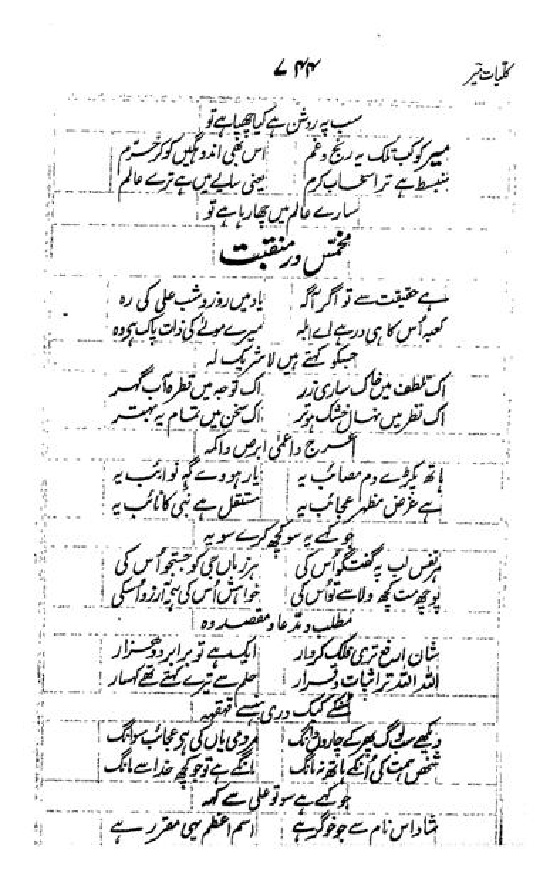 کلیات میر ۷۴۴
سب پہ روشن ہے کیا چھپا ہے تو
میر کو کب تلک یہ رنج و غم اس بھی اندوہگیں کو کر خرّم
منبسط ہے ترا سحاب کرم یعنی سایے میں ہے ترے عالم
سارے عالم میں چھا رہا ہے تو
مخمّس در منقبت
ہے حقیقت سے تو اگر آگہ یاد میں رہ روز و شب علی کی رہ
کعبہ اُس کا ہی در ہے اے ابلہ میرے مولےٰ کی ذات پاک ہے وہ
جسکو کہتے ہیں لا شریک لہ
اک تلطف میں خاک ساری زر اک توجہ میں قطرہ آب گہر
اک نظر میں نہال خشک ہو تر اک سخن میں تمام یہ بہتر
اعرج و اعمیٰ ابرص و اکمہ
ہاتھ پکڑے دم مصائب یہ یار ہووے گہ نوائب یہ
ہے غرض مظہر عجائب یہ مستقل ہے نبی کا نائب یہ
جو کہے یہ سو کچھ کرے سو یہ
ہر نفس لب پہ گفتگو اُس کی ہر زماں جی کو جستجو اُس کی
پوچھ مت کچھ ولا سے تو اُس کی خواہش اُس کی ہے آرزو اُسکی
مطلب و مدّعا و مقصد وہ
شان ارفع تری فلک کردار ایک ہے تو برابر دو ہزار
اللہ اللہ ترا ثبات و قرار حلم سے تیرے کہتے تھے کہسار
سنکے کبک دری ہنسے قہقہہ
دیکھے سب لوگ پھر کے چاروں دانگ مردمی یاں کی ہے عجائب سوانگ
شخص ہمت کی اُنکے ہاتھ نہ ٹانگ مانگے ہے تو جو کچھ خدا سے مانگ
جو کہے ہے سو تو علی سے کہہ
شاد اس نام سے جو خوگر ہے اسم اعظم یہی مقرر ہے